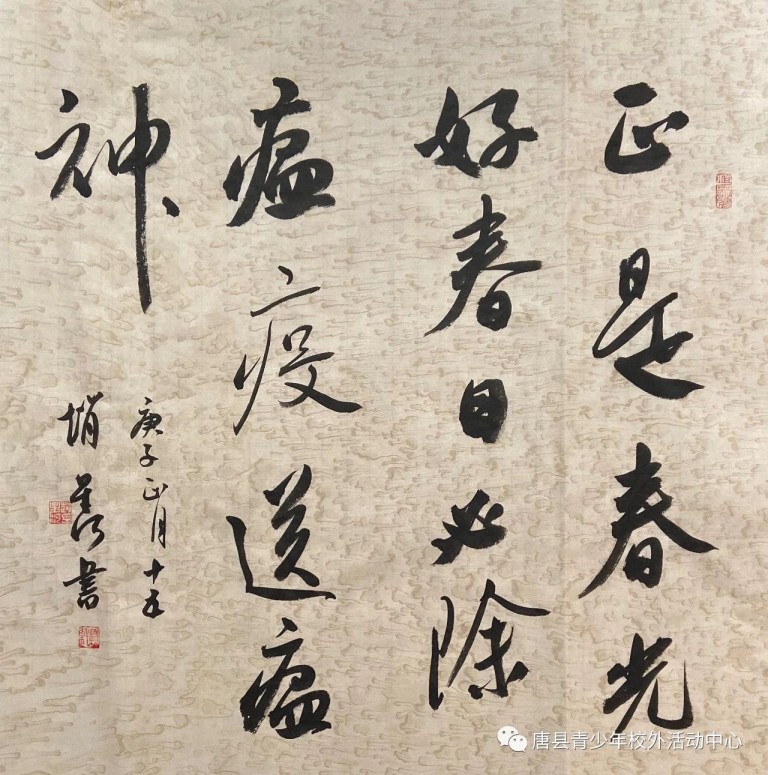 正是春光
好春日必除
瘟疫送瘟
神
庚子正月十五
书
唐县青少年校外活动中心